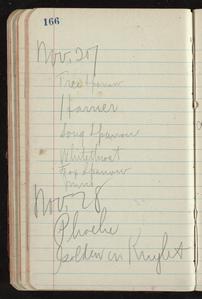 166
Nov. 27
Tree Sparrow
Harrier
Song Sparrow
Whitethroat
Fox Sparrow
Nov. 28
Phoebe
Golden Cr Knight